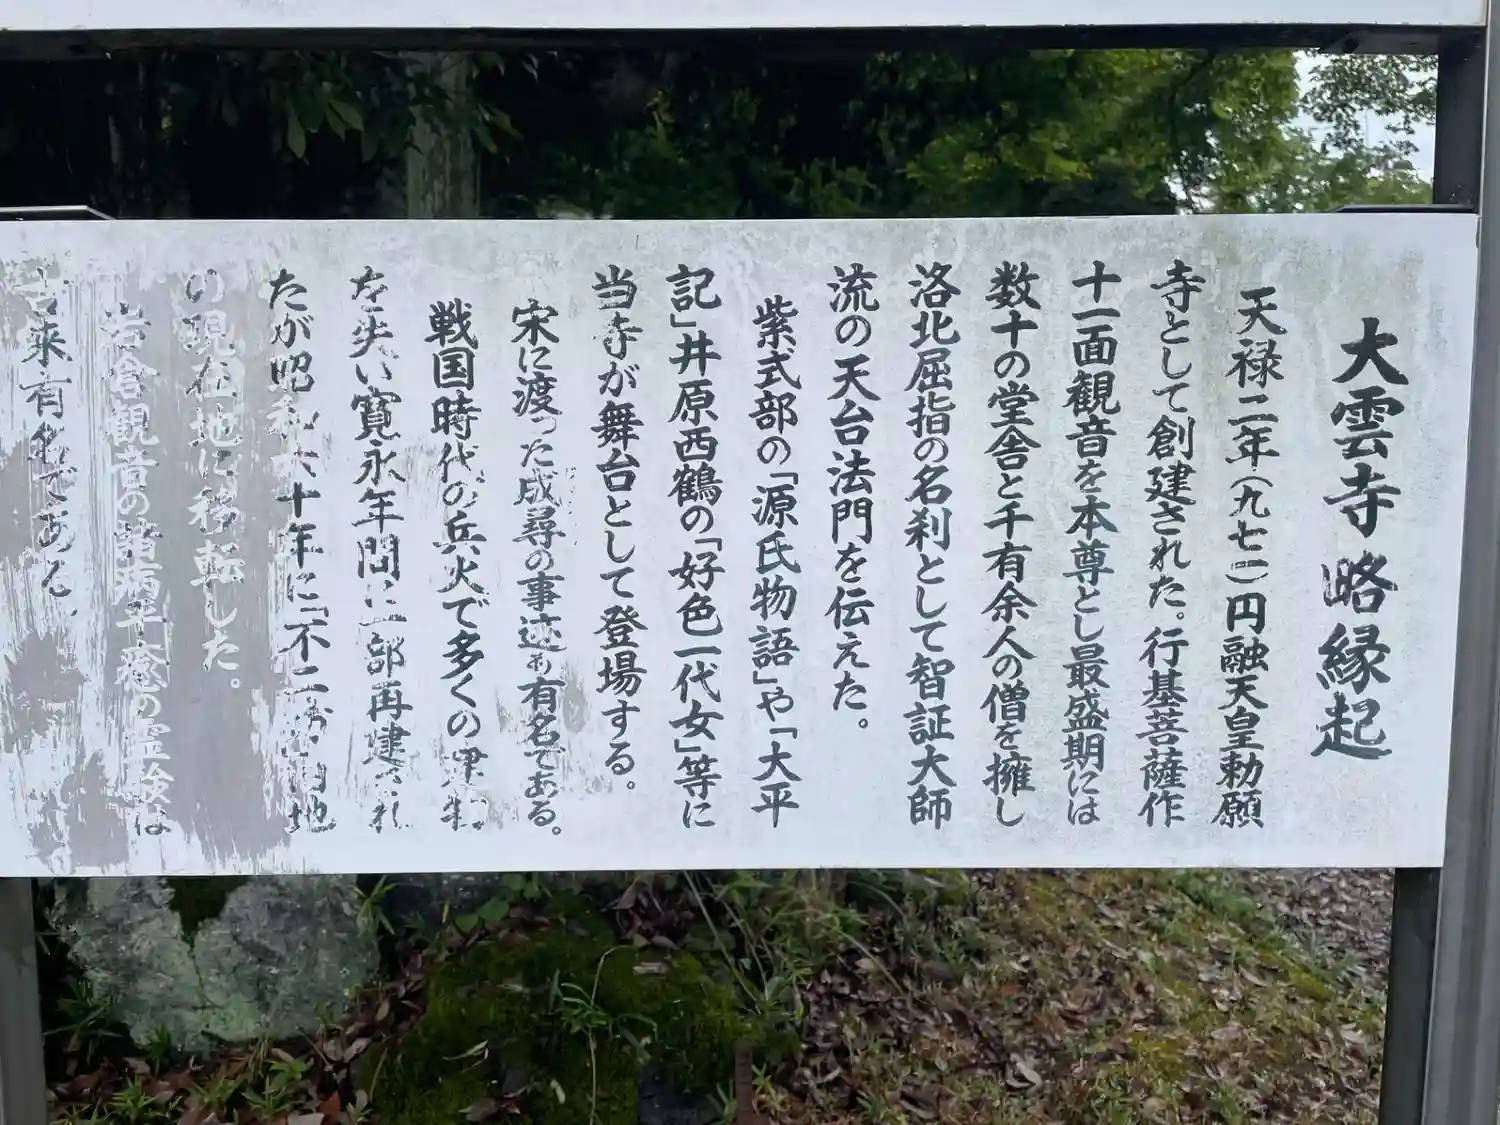 大雲寺略縁起
天禄二年(九七一)円融天皇勅願
寺として創建された。行基菩薩作
十一面観音を本尊とし最盛期には
数十の堂舎と千有余人の僧を擁し
洛北屈指の名刹として智証大師
流の天台法門を伝えた。
紫式部の「源氏物語」や「大平
記」井原西鶴の「好色一代女」等に
当寺が舞台として登場する。
宋に渡った成尋の事迹も有名である。
戦国時代の兵火で多くの建物
を失い寛永年間に一部再建され
たが昭和六十年に「不二 地
の現在地に移転した。
岩倉観音の諸病平癒の霊験は
古来有名である。